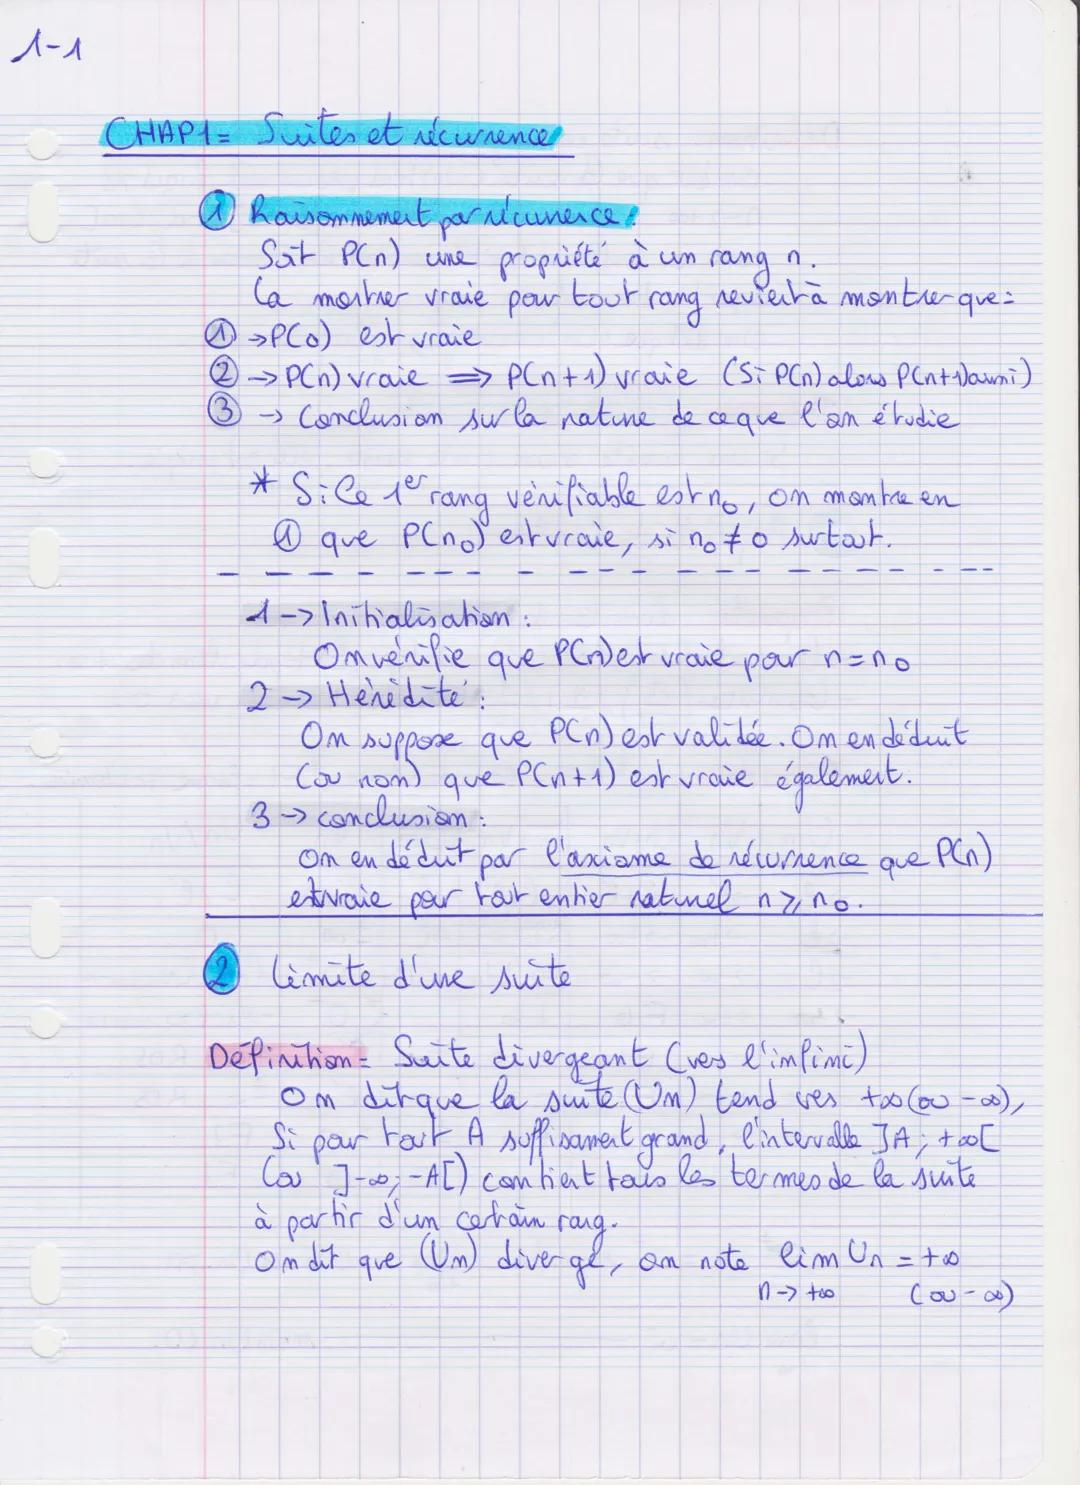 1-1
CHAP1= Suites et récurrence
① Raisonnement par récurrence:
Soit P(n) une propriété à un rang n.
La montrer vraie pour tout rang revient à montrer que=
① →P(0) est vraie
② → P(n) vraie ⟹ P(n+1) vraie (Si P(n) alors P(n+1) aussi)
③ → Conclusion sur la nature de ce que l'on étudie
* Si le 1er rang vérifiable est n₀, on montre en
① que P(n₀) est vraie, si n₀ ≠ 0 surtout.
1 → Initialisation :
On vérifie que P(n) est vraie pour n=n₀
2 → Hérédité :
On suppose que P(n) est validée. On en déduit
(ou non) que P(n+1) est vraie également.
3 → conclusion :
On en déduit par l'axiome de récurrence que P(n)
est vraie pour tout entier naturel n ⩾ n₀.
② Limite d'une suite
Définition= Suite divergeant (vers l'infini)
On dit que la suite (Un) tend vers +∞ (ou -∞),
Si pour tout A suffisament grand, l'intervalle ]A; +∞[
(ou ]-∞; -A[) contient tous les termes de la suite
à partir d'un certain rang.
On dit que (Un) diverge, on note lim Un = +∞
n→ +∞ (ou -∞)